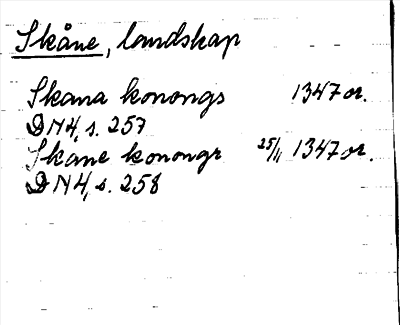 Skåne, landskap
Skana konongs 1347 or.
DN4, s. 257
Skane konongr 25/11 1347 or.
DN4, s. 258